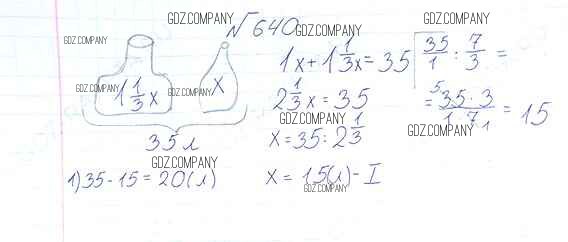 № 640
GDZ.COMPANY
GDZ.COMPANY
GDZ.COMPANY
GDZ.COMPANY
1x + 1 1/3 x = 35
35/1 : 7/3 =
GDZ.COMPANY
GDZ.COMPANY
1 1/3 x
x
GDZ.COMPANY
2 1/3 x = 35
= 35 · 3 / 1 · 7 = 15
5
1
GDZ.COMPANY
35 л
x = 35 : 2 1/3
GDZ.COMPANY
GDZ.COMPANY
1) 35 - 15 = 20 (л)
x = 15 (л) - I
GDZ.COMPANY